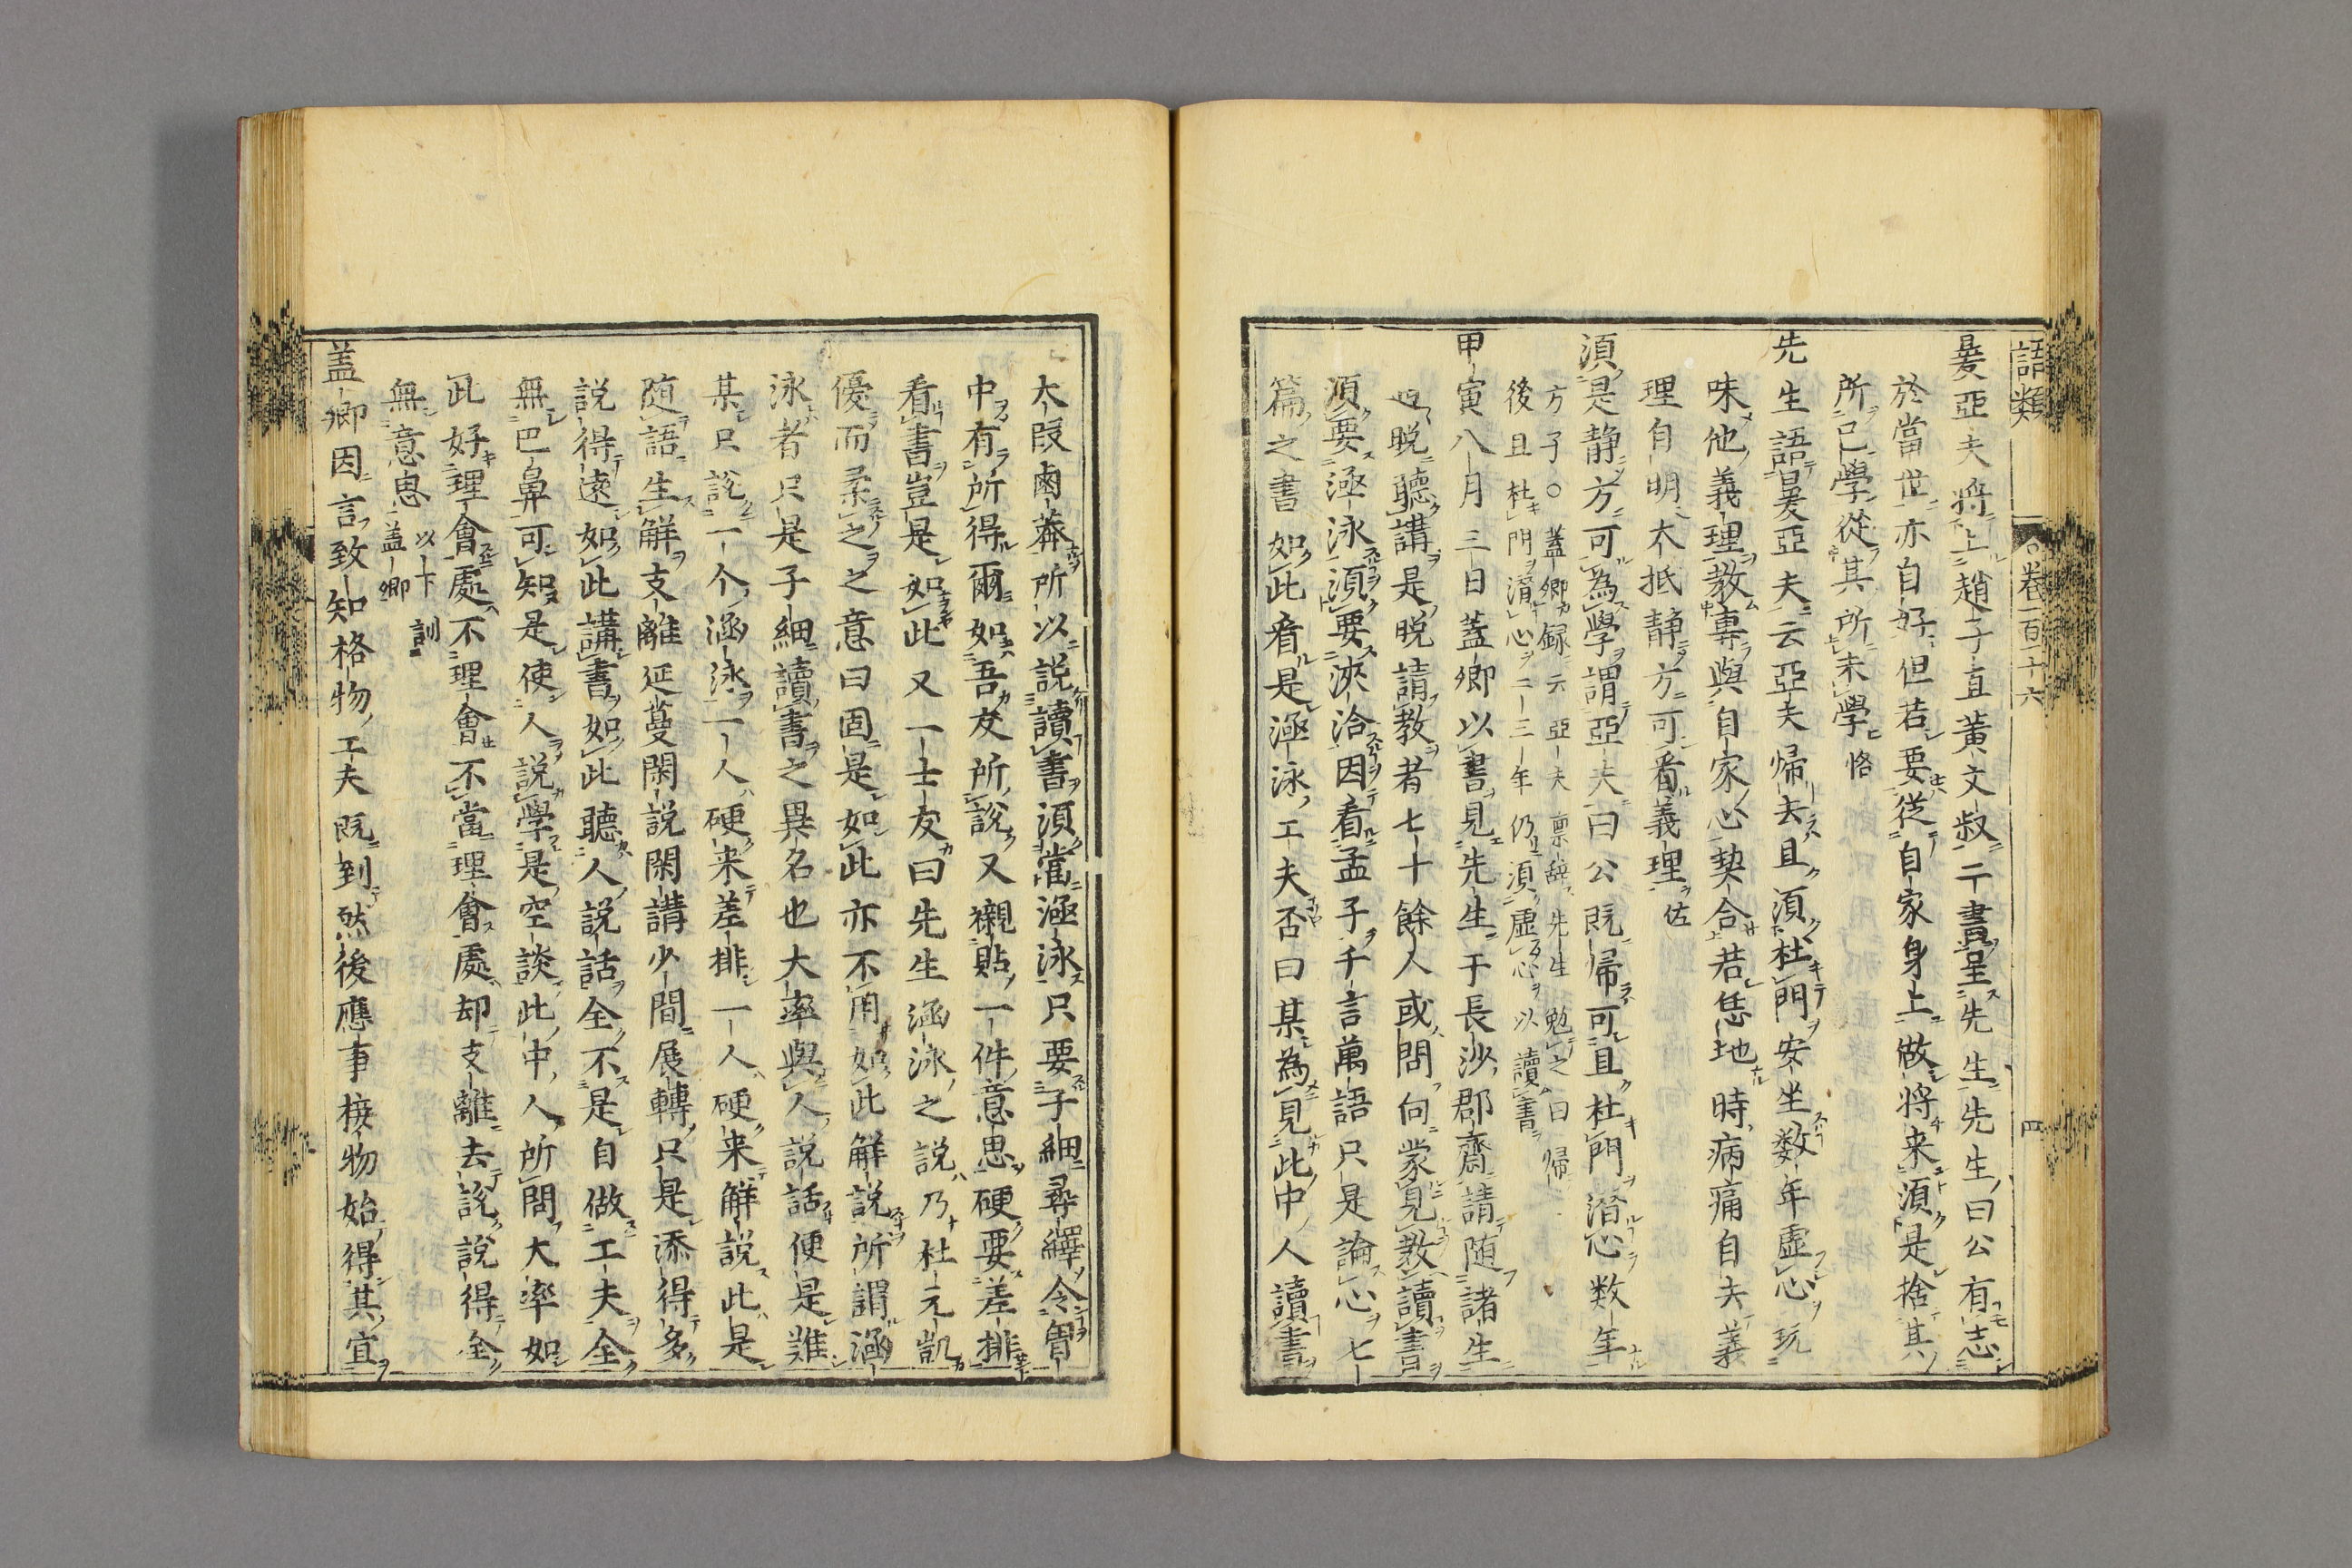 語類 卷一百十六 四
㬊亞夫將上趙子直黃文叔二書呈先生先生曰公有志
於當世亦自好但若要從自家身上做將来須是捨其
所已學從其所未學 恪
先生語㬊亞夫云亞夫帰去且須杜門安坐数年虚心玩
味他義理教專與自家心契合若恁地時病痛自去義
理自明大抵静方可看義理 佐
須是静方可為學謂亞夫曰公既帰可且杜門潛心数年
方子○蓋卿録云亞夫禀辞先生勉之曰帰
後且杜門潛心二三年仍須虚心以讀書
甲寅八月三日蓋卿以書見先生于長沙郡齋請随諸生
遇晩聽講是晩請教者七十餘人或問向蒙見教讀書
須要涵泳須要浹洽因看孟子千言萬語只是論心七
篇之書如此看是涵泳工夫否曰某為見此中人讀書
大段鹵莽所以説讀書須當涵泳只要子細尋繹令胷
中有所得爾如吾友所說又襯貼一件意思硬要差排
看書豈是如此又一士友曰先生涵泳之說乃杜元凱
優而柔之之意曰固是如此亦不用如此解説所謂涵
泳者只是子細讀書之異名也大率與人説話便是難
某只說一个涵泳一人硬来差排一人硬来解説此是
随語生解支離延蔓閑説閑講少間展轉只是添得多
説得遠如此講書如此聽人説話全不是自做工夫全
無巴鼻可知是使人説學是空談此中人所問大率如
此好理會處不理會不當理會處却支離去説說得全
無意思 以下訓
蓋卿
盖卿因言致知格物工夫既到然後應事接物始得其宜